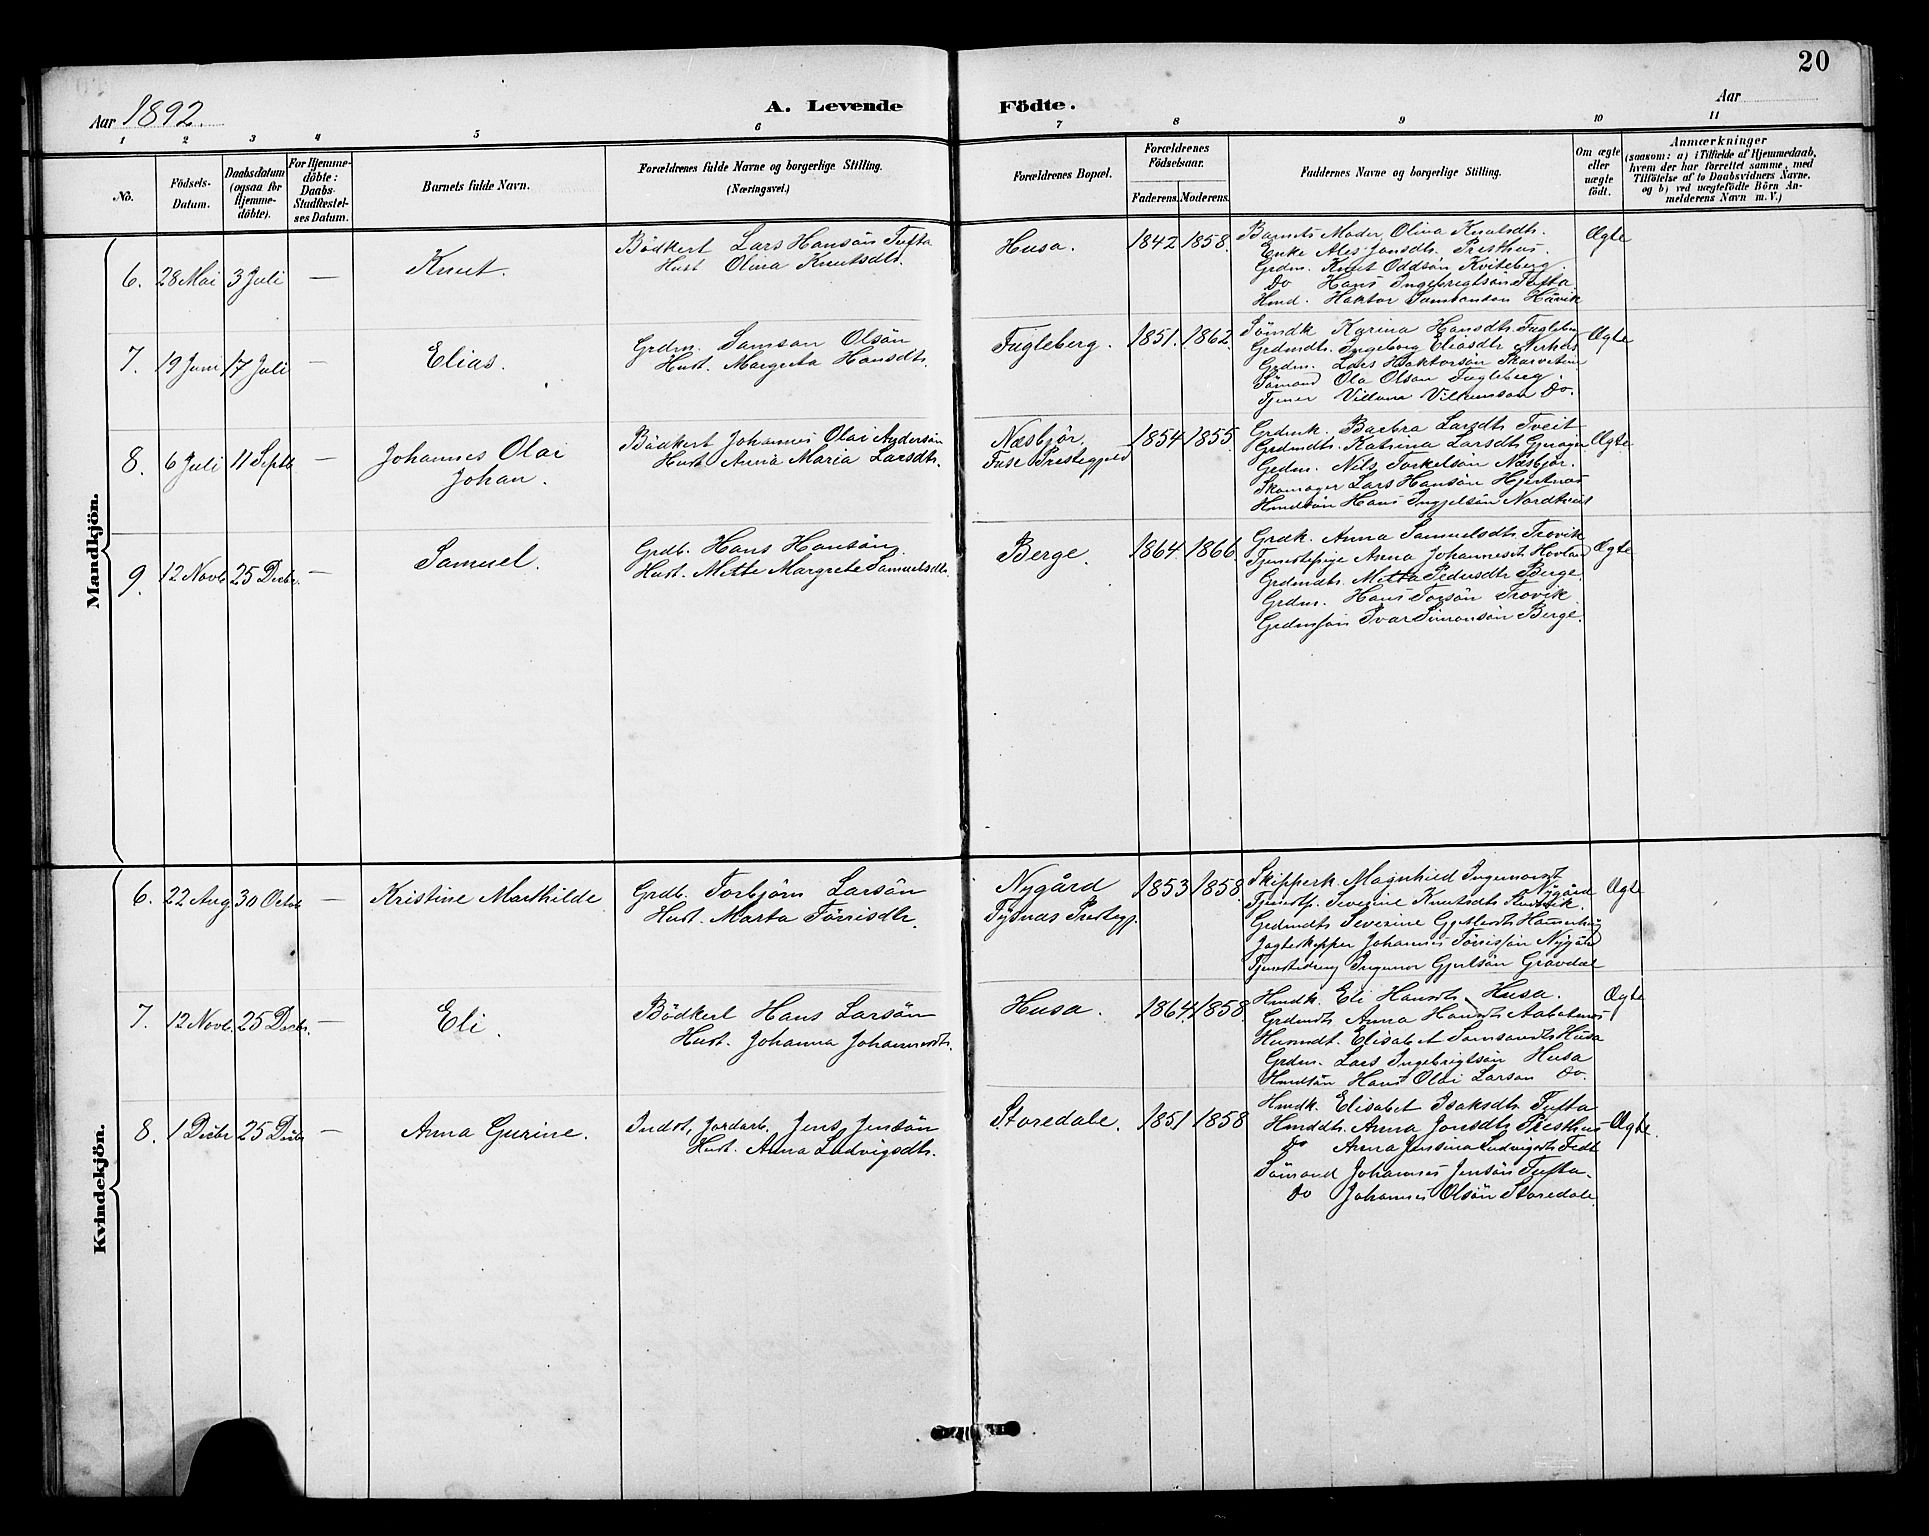 20
Aar 1892.
A. Levende Födte.
Aar
1 2 3 4 5 6 7 8 9 10 11
No.
Födsels-Datum.
Daabsdatum (ogsaa for Hjemme-döbte).
For Hjemme-döbte: Daabs-Stadfæstel-ses Datum.
Barnets fulde Navn.
Forældrenes fulde Navne og borgerlige Stilling.
(Næringsvei.)
Forældrenes Bopæl.
Forældrenes Födselsaar.
Faderens. Moderens.
Faddernes Navne og borgerlige Stilling.
Om ægte eller uægte født.
Anmærkninger
(saasom: a) i Tilfælde af Hjemmedaab,
hvem der har forrettet samme, med
Tilföielse af to Daabsvidners Navne,
og b) ved uægtefödte Börn An-
melderens Navn m. V.)
Mandkjön.
6. 28 Mai 3 Juli — Knut.
Bödkert Lars Hansön Tufta
Hust. Olina Knutsdtr.
Husa. 1842 1858.
Barnets Moder Olina Knutsdtr.
Enke Ales Jonsdtr. Presthus
Grdm. Knut Oddsön Kviteberg.
Do Hans Ingebrigtsön Tufta
Hmd. Haktor Samsonsön Hävik
Ægte
7. 19 Juni 17 Juli — Elias.
Grdm. Samson Olsön
Hust. Margreta Hansdtr.
Fugleberg. 1851. 1862.
Sömdk Karina Hansdtr. Fugleber
Grdmdtr. Ingeborg Eliasdtr
Grdm. Lars Haktorsön
Sömand Ola Olson Fugleberg.
Tjener Do.
Ægte
8. 6 Juli 11 Septb — Johannes Olai
Johan.
Bödkert Johannes Olai Andersön
Hust. Anna Maria Larsdtr.
Næsbjör.
Fuse Prestegjeld
1854 1855.
Grdmk. Barbra Larsdtr Tveit
Grdmdtr. Katrina Larsdtr
Grdm. Nils Torkelsön Næsbjör.
Skomager Lars Hansön Hjertnes
Hmdsön Hans Nordtveit
Ægte
9. 12 Novb 25 Decbr. — Samuel.
Grdb. Hans Hansön
Hust. Mette Margrete Samuelsdtr.
Berge. 1864. 1866.
Grdk. Anna Samuelsdtr. Trovik
Tjenestepige Anna Johannesdt Hovland
Grdmdtr. Metta Pedersdtr Berge.
Grdm. Hans Torsön Trovik
Grdmsön Ivar Simonsön Berge.
Ægte
Kvindekjön.
6. 22 Aug 30 Octob — Kristine Mathilde
Grdb. Torbjörn Larsön
Hust. Marta Törrisdtr.
Nygård
Tysnes Prestegj.
1853 1858.
Skipperk. Magnhild Ingemorsdt
Nygård
Tjenestp. Severine Knutsdtr
Grdmdtr Severine
Jagteskipper Johannes Törrissön Nygård
Tjenestedreng Ingemor Gjertsön Gravdal
Ægte
7. 12 Novb. 25 Decbr. — Eli.
Bödkert Hans Larsön
Hust. Johanna Johannesdtr.
Husa. 1864. 1858.
Hmdk. Eli Hansdtr. Husa.
Grdmdtr Anna Hansdtr
Husmdt. Elisabet Samsondtr Husa
Grdm. Lars Ingebrigtsön Husa
Hmdsön Hans Olai Larson Do.
Ægte
8. 1 Decbr 25 Decbr — Anna Gurine.
Indst, Jordarb. Jens Jensön
Hust. Anna Ludvigsdtr.
Storedale. 1851 1858
Hmdk. Elisabet Isaksdtr. Tufta
Hmddtr. Anna Jonsdtr Presthus
Do Anna Jensina Ludvigsdtr Fedt
Sömand Johannes Jensön Tufta.
Do Johannes Olsön Storedale
Ægte.